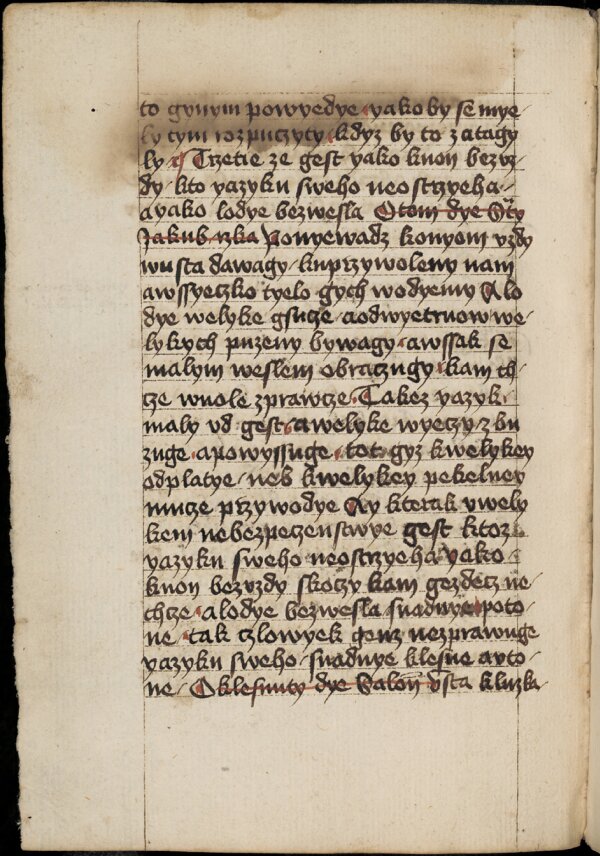 to gynym powyedye yakoby se mye
ly tym rozpuczyty kdyz by to zatagy
ly Trzetie ze gest yako kuon bezvz
dy kto yazyku sweho neostrzyeha
ayako lodye bezwesla Otom dye Sty
Jakub rzka Ponyewadz konyem vzdy
wusta dawagy kuprzywoleny nam
awssyeczko tyelo gych wodyemy A lo
dye welyke gsucze aodwyetruow we
lykych puzeny bywagy awssak se
malym weslem obraczugy kam ch
cze wuole zprawcze Takez yazyk
maly vd gest awelyke wyeczy zbu
zuge apowyssuge tot gyz kwelykey
odplatye neb kwelykey pekelney
mucze przywodye Ay kterak vwely
kem nebezpeczenstwye gest ktoz
yazyku sweho neostrzyeha yako
kuon bezvzdy skoczy kam gezdecz ne
chcze alodye bezwesla snadnye poto
ne tak czlowyek genz nezprawuge
yazyku sweho snadnye klesne avto
ne Oklesnuty dye Salon vsta kluzka